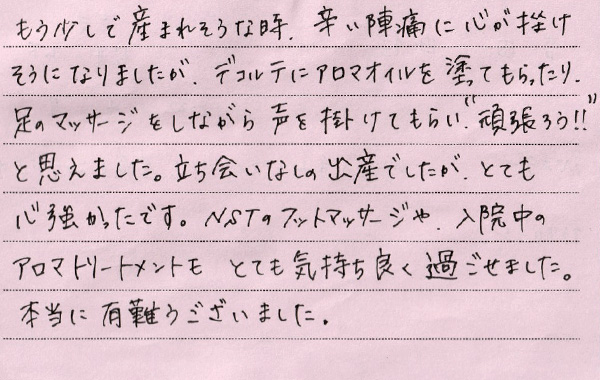 もう少しで産まれそうな時、辛い陣痛に心が挫け
そうになりましたが、デコルテにアロマオイルを塗ってもらったり、
足のマッサージをしながら声を掛けてもらい、"頑張ろう!!"
と思えました。立ち会いなしの出産でしたが、とても
心強かったです。NSTのフットマッサージや、入院中の
アロマトリートメントも とても気持ち良く過ごせました。
本当に有難うございました。